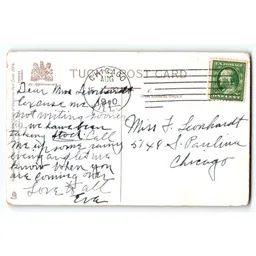 TUCK'S POST CARD
CHICAGO
AUG
1910
ILL.
ONE CENT
Dear Miss Leonhardt
Excuse me for
not writing sooner
we have been
taking stock. Call
me up some rainy
evening and let me
know when you
are coming over
Love to all
Eva
Miss F. Leonhardt
5148 S. Paulina
Chicago